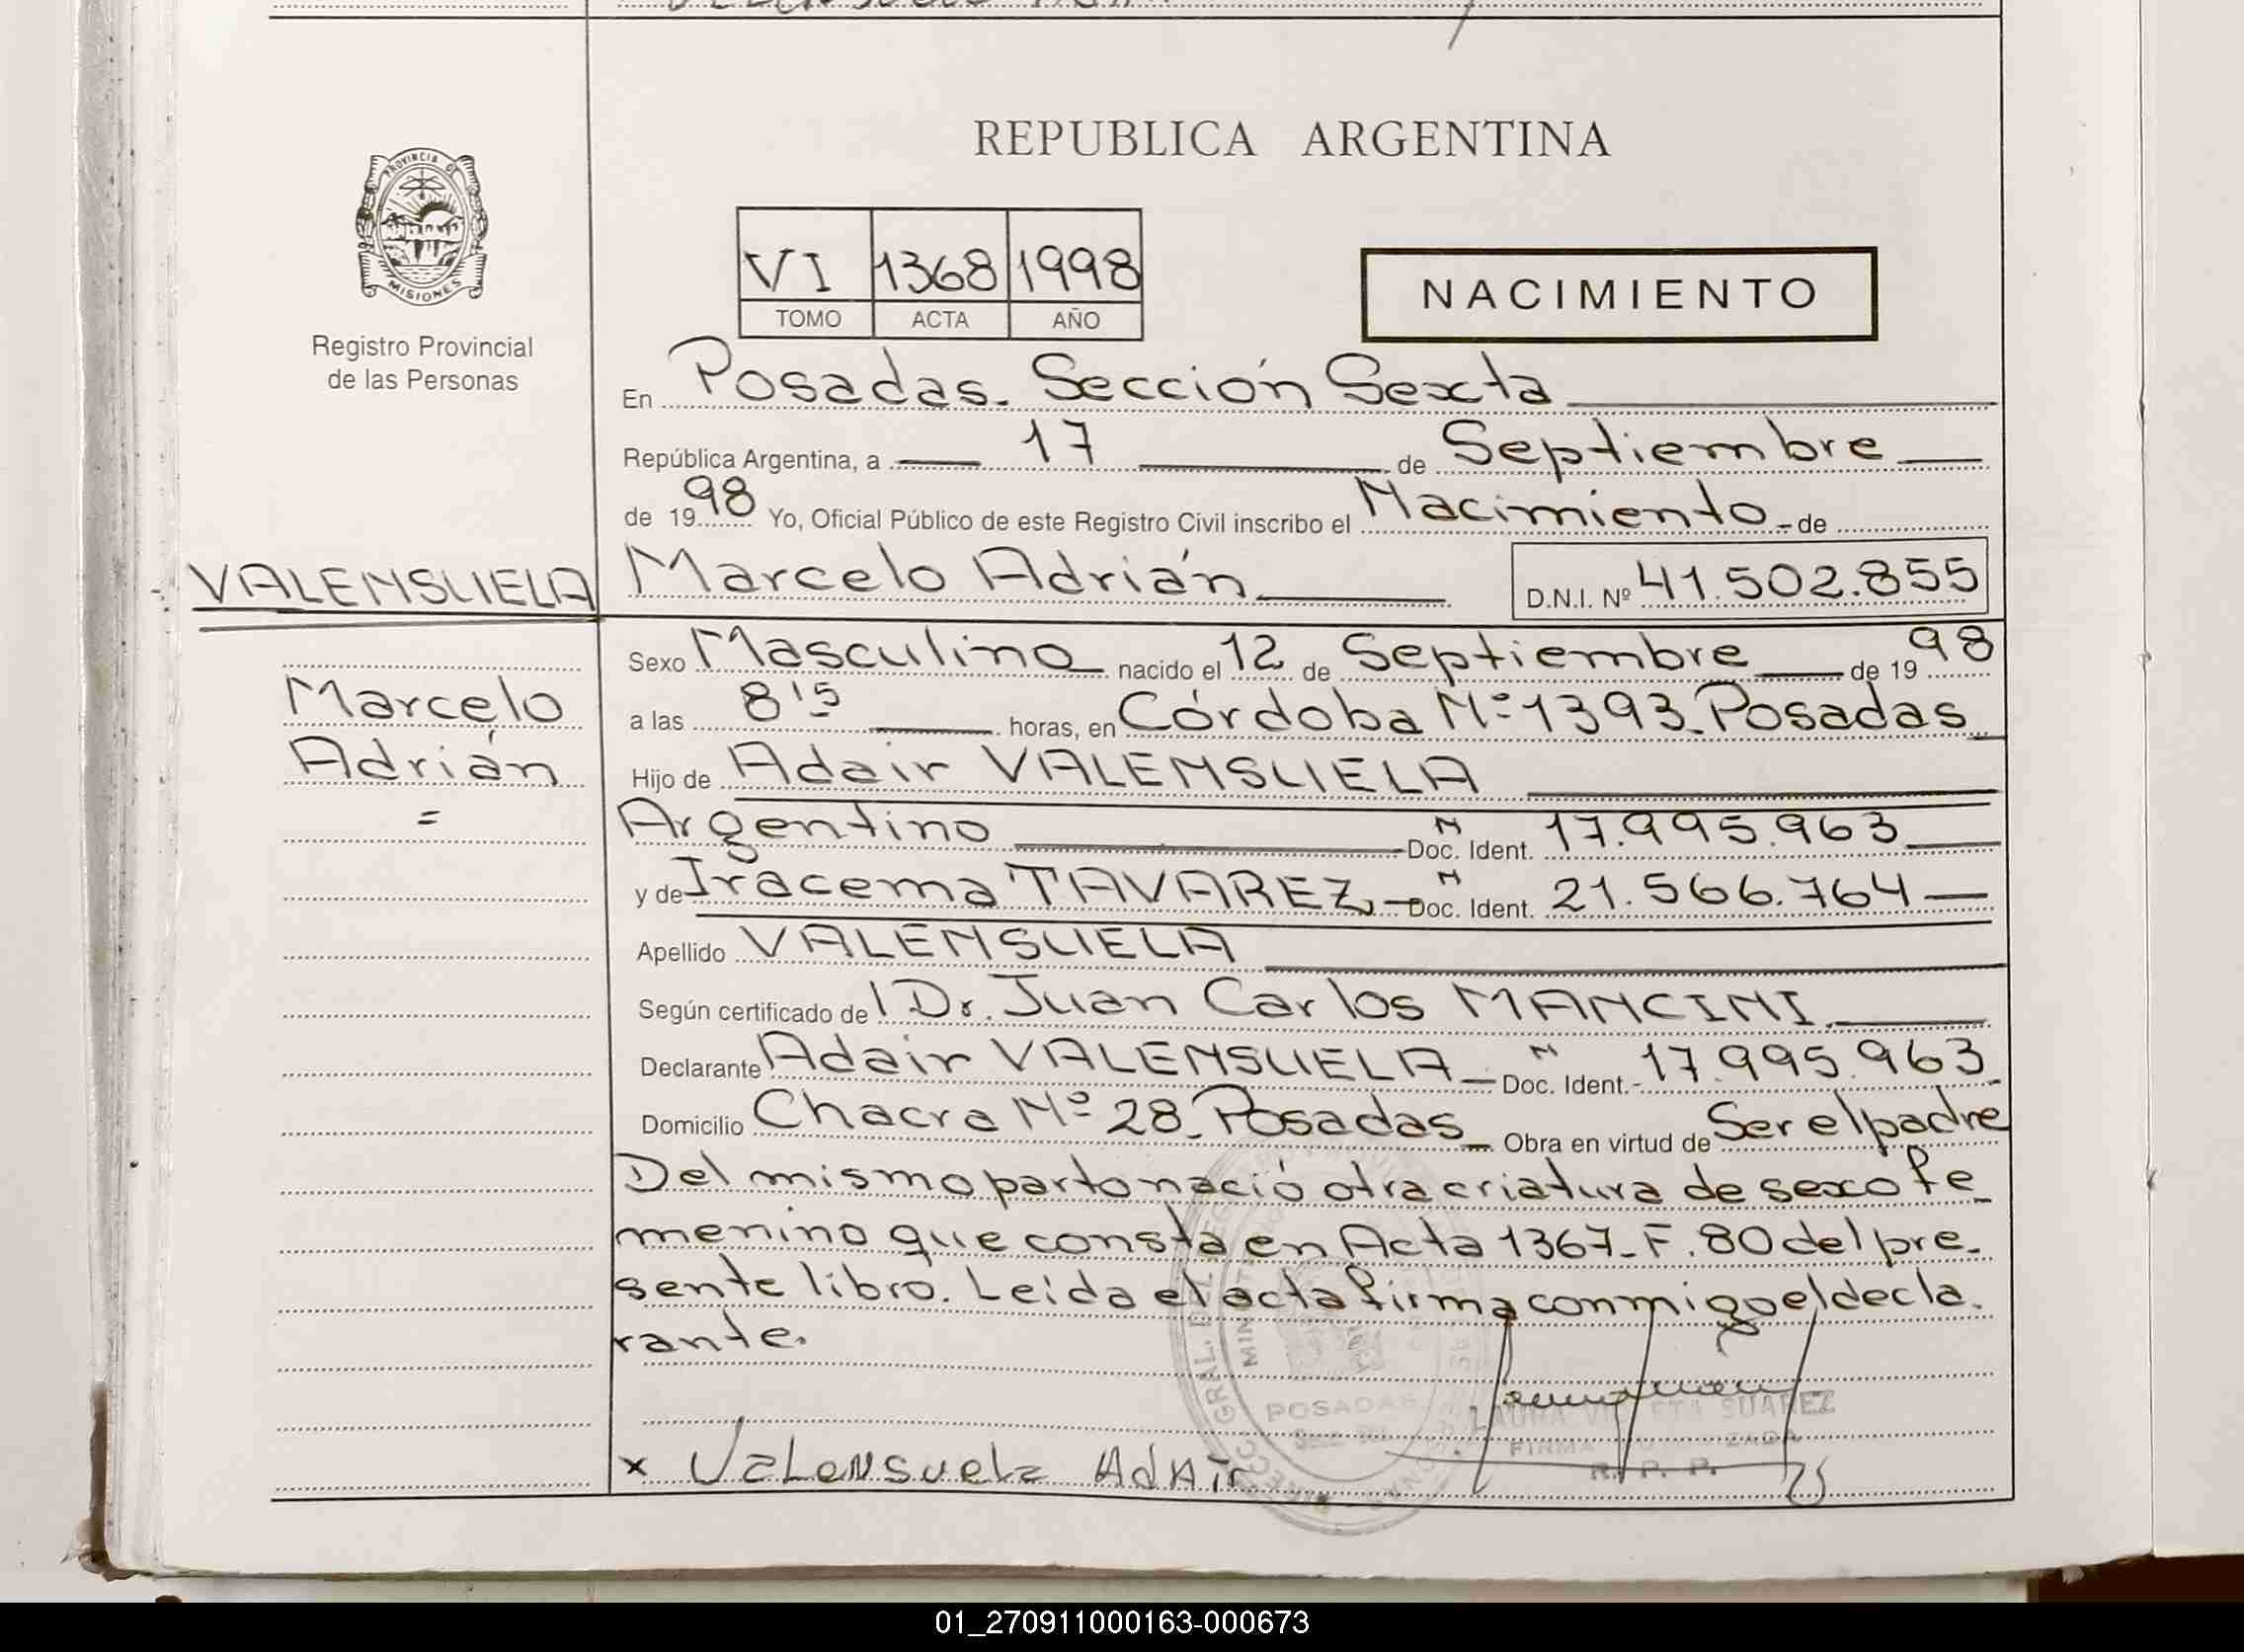 REPUBLICA ARGENTINA
PROVINCIA DE
MISIONES
Registro Provincial
de las Personas
VI 1368 1998
TOMO ACTA AÑO
NACIMIENTO
En Posadas. Sección Sexta
República Argentina, a 17 de Septiembre
de 1998 Yo, Oficial Público de este Registro Civil inscribo el Nacimiento de
VALENSUELA Marcelo Adrián D.N.I. Nº 41.502.855
Sexo Masculino nacido el 12 de Septiembre de 1998
Marcelo a las 8'15 horas, en Córdoba Nº 1393 Posadas
Adrián Hijo de Adair VALENSUELA
= Argentino N Doc. Ident. 17.995.963
y de Iracema TAVAREZ N Doc. Ident. 21.566.764
Apellido VALENSUELA
Según certificado del Dr. Juan Carlos MANCINI
Declarante Adair VALENSUELA N Doc. Ident. 17.995.963
Domicilio Chacra Nº 28 Posadas Obra en virtud de Ser el padre
Del mismo parto nació otra criatura de sexo fe
menino que consta en Acta 1367 - F. 80 del pre-
sente libro. Leída el acta firma conmigo el decla
rante.
POSADAS
LAURA VIOLETA SUAREZ
FIRMA AUTORIZADA
R. P. P.
x Valensuela Adair
01_270911000163-000673